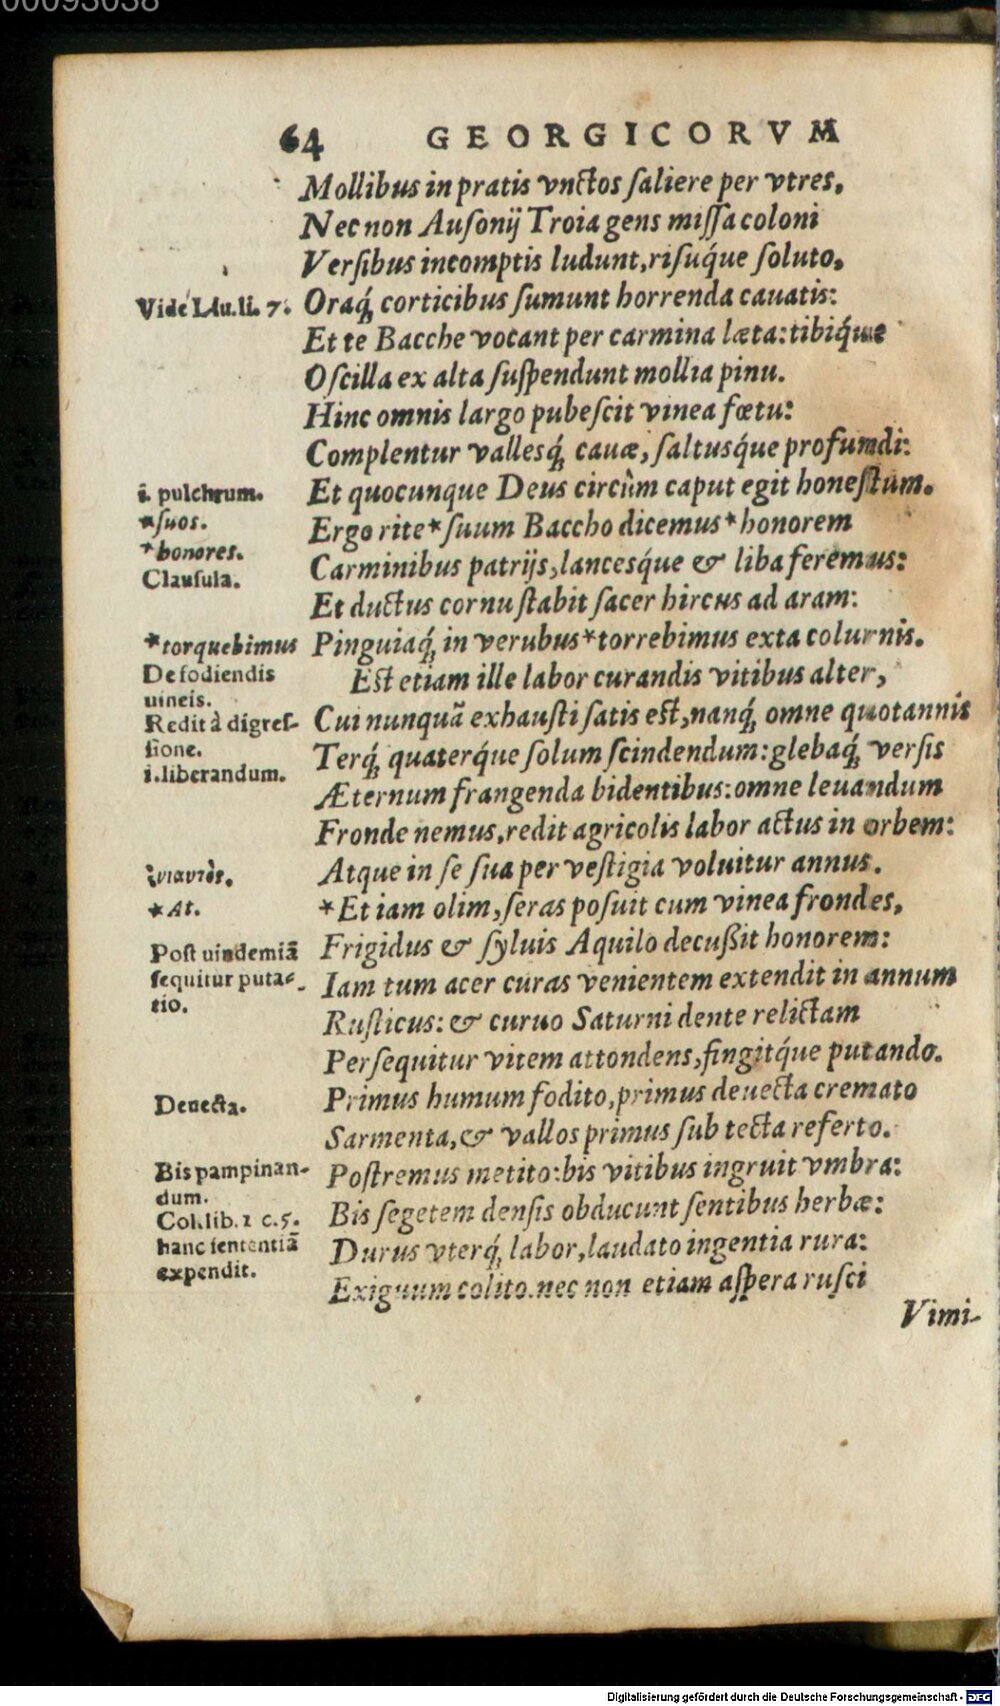 00093038
64 GEORGICORVM
Mollibus in pratis vnctos ſaliere per vtres,
Nec non Auſonij Troia gens miſſa coloni
Verſibus incomptis ludunt, riſuq́ue ſoluto,
Vide Liu. li. 7. Oraq́; corticibus ſumunt horrenda cauatis:
Et te Bacche vocant per carmina læta: tibiq́ue
Oſcilla ex alta ſuſpendunt mollia pinu.
Hinc omnis largo pubeſcit vinea fœtu:
Complentur vallesq́; cauæ, ſaltusq́ue profundi:
i. pulchrum. Et quocunque Deus circùm caput egit honeſtum.
*ſuos. Ergo rite * ſuum Baccho dicemus * honorem
*honores.
Carminibus patrijs, lancesq́ue & liba feremus:
Clauſula.
Et ductus cornu ſtabit ſacer hircus ad aram:
*torquebimus Pinguiaq́; in verubus * torrebimus exta colurnis.
De fodiendis
uineis.
Eſt etiam ille labor curandis vitibus alter,
Redit à digreſ-
ſione.
Cui nunquã exhauſti ſatis eſt, nanq́; omne quotannis
Terq́; quaterq́ue ſolum ſcindendum: glebaq́; verſis
i. liberandum.
Æternum frangenda bidentibus: omne leuandum
Fronde nemus, redit agricolis labor actus in orbem:
ἐνιαυτὸς. Atque in ſe ſua per veſtigia voluitur annus.
*At. *Et iam olim, ſeras poſuit cum vinea frondes,
Poſt uindemiã
ſequitur puta-
tio.
Frigidus & ſyluis Aquilo decußit honorem:
Iam tum acer curas venientem extendit in annum
Ruſticus: & curuo Saturni dente relictam
Perſequitur vitem attondens, fingitq́ue putando.
Deuecta. Primus humum fodito, primus deuecta cremato
Sarmenta, & vallos primus ſub tecta referto.
Bis pampinan-
dum.
Poſtremus metito: bis vitibus ingruit vmbra:
Col. lib. 1 c. 5.
hanc ſententiã
expendit.
Bis ſegetem denſis obducunt ſentibus herbæ:
Durus vterq́; labor, laudato ingentia rura:
Exiguum colito. nec non etiam aſpera ruſci
Vimi-
Digitalisierung gefördert durch die Deutsche Forschungsgemeinschaft - DFG